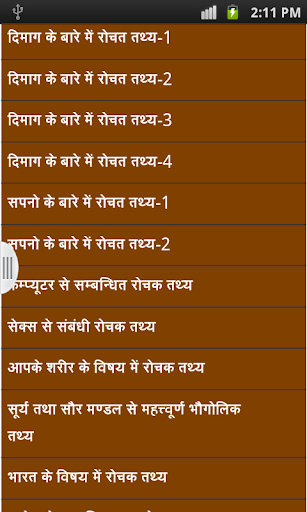 2:11 PM
दिमाग के बारे में रोचत तथ्य-1
दिमाग के बारे में रोचत तथ्य-2
दिमाग के बारे में रोचत तथ्य-3
दिमाग के बारे में रोचत तथ्य-4
सपनो के बारे में रोचत तथ्य-1
सपनो के बारे में रोचत तथ्य-2
कम्प्यूटर से सम्बन्धित रोचक तथ्य
सेक्स से संबंधी रोचक तथ्य
आपके शरीर के विषय में रोचक तथ्य
सूर्य तथा सौर मण्डल से महत्त्वूर्ण भौगोलिक
तथ्य
भारत के विषय में रोचक तथ्य